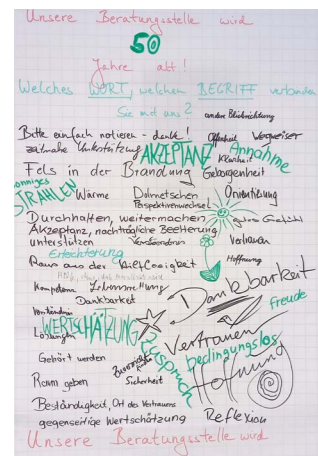 Unsere Beratungsstelle wird
50
Jahre alt!
Welches WORT, welchen BEGRIFF verbinden
Sie mit uns? andere Blickrichtung
Bitte einfach notieren - danke! Offenheit Wegweiser
zeitnahe Unterstützung AKZEPTANZ Klarheit Annahme
Fels in der Brandung Geborgenheit
sonniges STRAHLEN Wärme Dolmetschen Orientierung
Perspektivenwechsel
Durchhalten, weitermachen gutes Gefühl
Akzeptanz, nachträgliche Beelterung
unterstützen Verstandensein Vertrauen
Erleichterung
Raus aus der Hilflosigkeit Hoffnung
Kompetenz
Dankbarkeit Dankbarkeit
Verständnis Freude
WERTSCHÄTZUNG
Lösungen Vertrauen
Zuspruch bedingungslos
Gehört werden Hoffnung
Raum geben Sicherheit
Beständigkeit, Ort des Vertrauens
gegenseitige Wertschätzung Reflexion
Unsere Beratungsstelle wird